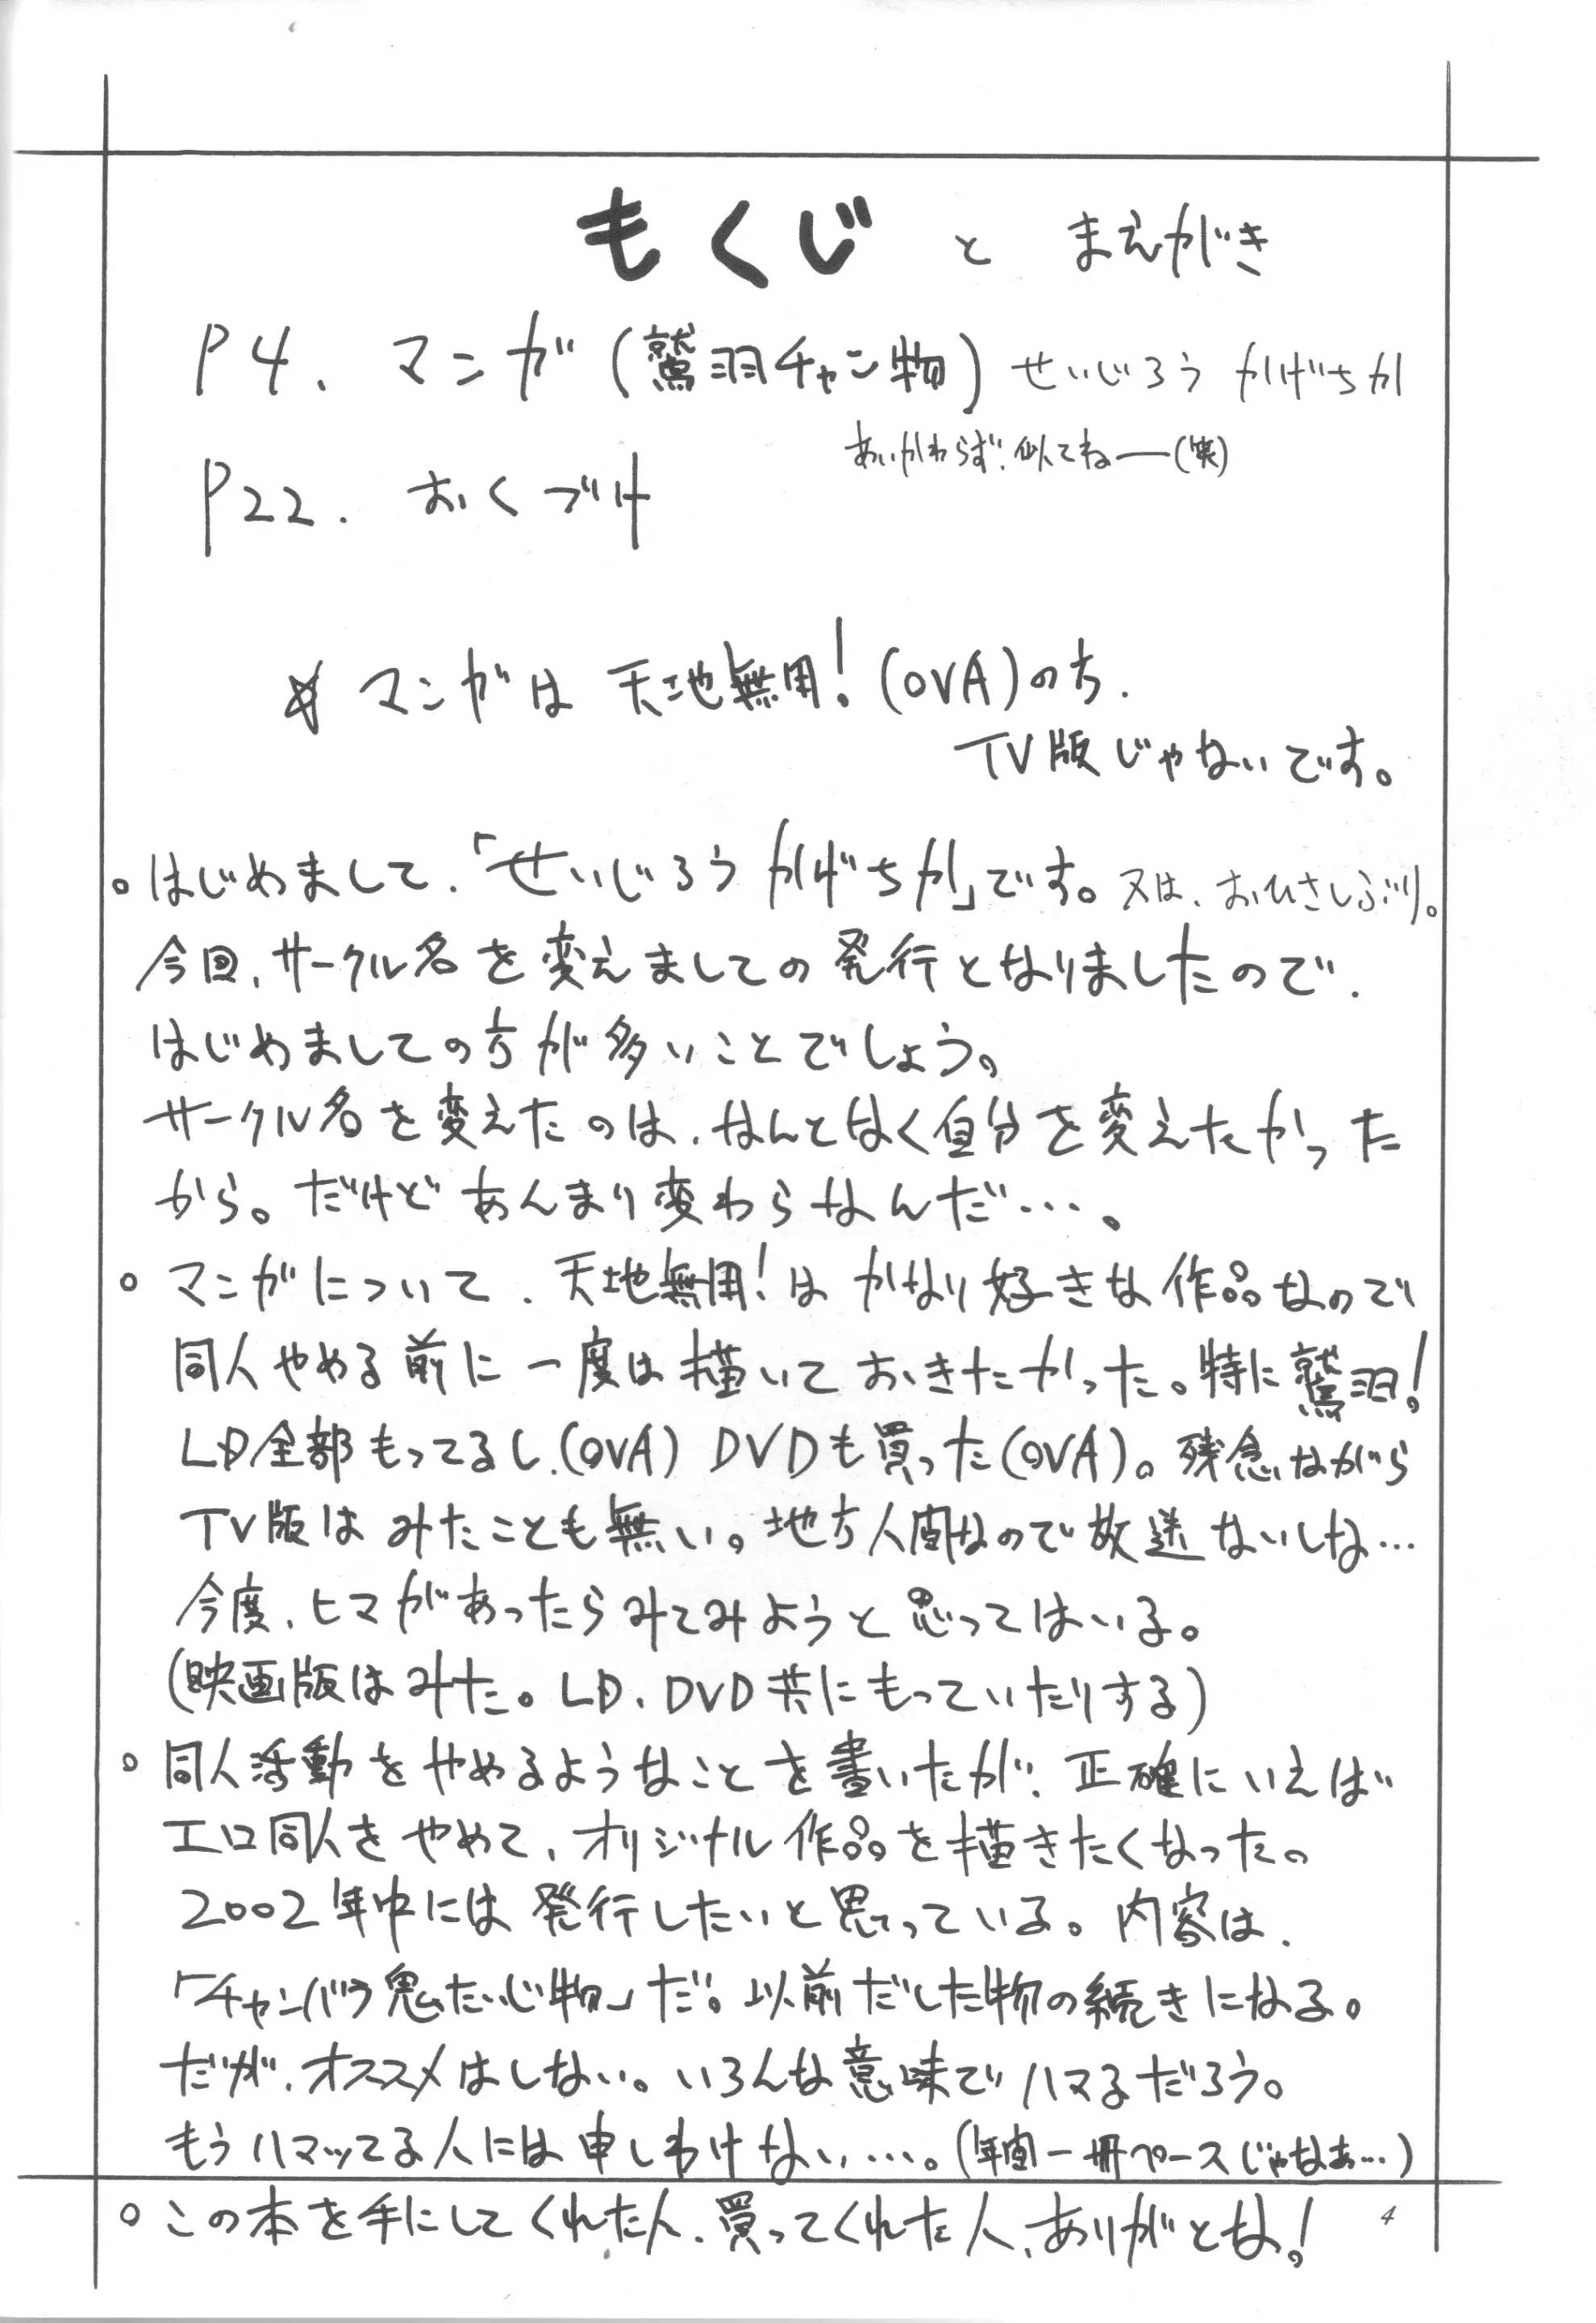 もくじ と まえがき
P4. マンガ (鷲羽チャン物) せいじろう かげちか
あいかわらず、似てねー(笑)
P22. おくづけ
☆ マンガは 天地無用! (OVA)のち.
TV版じゃないです。
○はじめまして、「せいじろう かげちか」です。又は、おひさしぶり。
今回、サークル名を変えましての発行となりましたので、
はじめましての方が多いことでしょう。
サークル名を変えたのは、なんとなく自分を変えたかった
から。だけど あんまり変わらなんだ…。
○ マンガについて、天地無用!は かなり好きな作品なので
同人やめる前に一度は描いておきたかった。特に鷲羽!
LD全部もってるし、(OVA) DVDも買った(OVA)。残念ながら
TV版はみたことも無い。地方人間なので放送ないしな…
今度、ヒマがあったらみてみようと思ってはいる。
(映画版はみた。LD、DVD共にもっていたりする)
○ 同人活動をやめるようなことを書いたが、正確にいえば
エロ同人をやめて、オリジナル作品を描きたくなった。
2002年中には発行したいと思っている。内容は、
「チャンバラ鬼たいじ物」だ。以前だした物の続きになる。
だが、オススメはしない。いろんな意味でハマるだろう。
もうハマッてる人には申しわけない…。(年間一冊ペースじゃなぁ…)
○この本を手にしてくれた人、買ってくれた人、ありがとな!
4